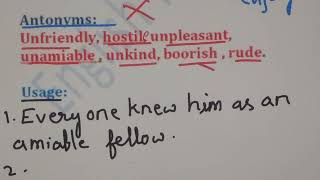 Antonyms:
Unfriendly, hostile unpleasant,
unamiable, unkind, boorish, rude.
Usage:
1. Everyone knew him as an
amiable fellow.
2.